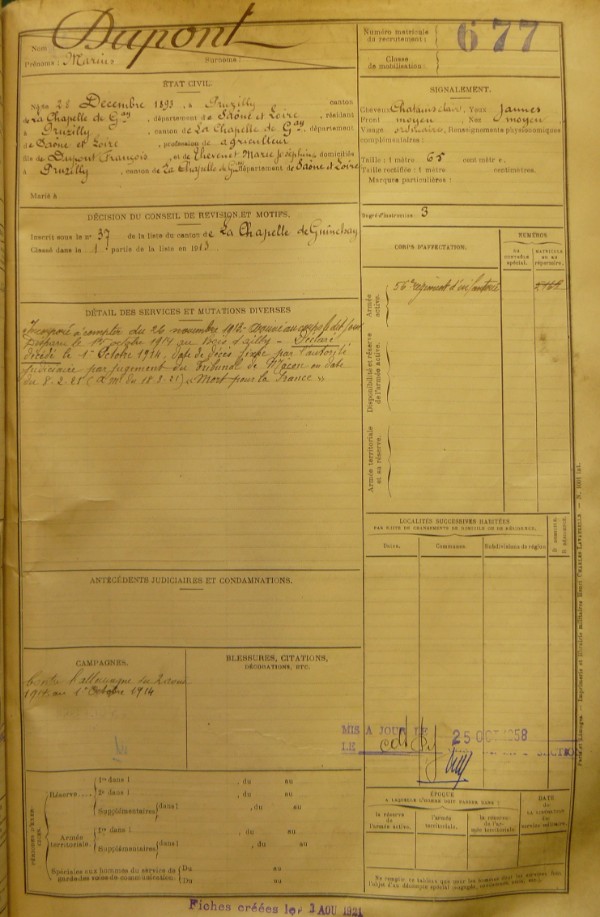 Nom : Dupont
Prénoms : Marius Surnoms :
Numéro matricule
du recrutement :
677
Classe
de mobilisation :
ÉTAT CIVIL.
Né le 26 Décembre 1893, à Pruzilly, canton
de La Chapelle de Gay, département de Saône et Loire, résidant
à Pruzilly, canton de La Chapelle de Gay, département
de Saône et Loire, profession de agriculteur
fils de Dupont François, et de Thevenet Marie Joséphine domiciliés
à Pruzilly, canton de La Chapelle de département de Saône et Loire
Marié à
SIGNALEMENT.
Cheveux Chatains clair, Yeux Jaunes
Front moyen, Nez moyen
Visage ordinaire, Renseignements physionomiques
complémentaires :
Taille : 1 mètre 65 centimètres.
Taille rectifiée : 1 mètre centimètres.
Marques particulières :
DÉCISION DU CONSEIL DE REVISION ET MOTIFS.
Inscrit sous le n° 37 de la liste du canton de La Chapelle de Guinchay
Classé dans la 1 partie de la liste en 1913
Degré d'instruction : 3
CORPS D'AFFECTATION.
NUMÉROS
au contrôle spécial.
matricule ou au répertoire.
Armée active.
56e régiment d'infanterie
Disponibilité et réserve de l'armée active.
Armée territoriale et sa réserve.
DÉTAIL DES SERVICES ET MUTATIONS DIVERSES
Incorporé à compter du 26 novembre 1913.
disparu le 1er octobre 1914 au bois d'ailly - Déclaré
décédé le 1er Octobre 1914, date de décès fixée par l'autorité
judiciaire par jugement du tribunal de Mâcon en date
du 8.2.21 « Mort pour la France »
LOCALITÉS SUCCESSIVES HABITÉES
PAR SUITE DE CHANGEMENTS DE DOMICILE OU DE RÉSIDENCE.
Dates. Communes. Subdivisions de région.
D. DOMICILE
R. RÉSIDENCE
ANTÉCÉDENTS JUDICIAIRES ET CONDAMNATIONS.
CAMPAGNES.
Contre l'allemagne du 2 aout
1914 au 1er Octobre 1914
BLESSURES, CITATIONS,
DÉCORATIONS, ETC.
MIS A JOUR
LE
25 OCT 1958
PÉRIODES D'EXERCICES.
Réserve
1re dans l , du au
2e dans l , du au
Supplémentaires dans l , du au
Armée territoriale
1re dans l , du au
Supplémentaires dans l , du au
Spéciales aux hommes du service de
gardes des voies de communication.
Du au
Du au
ÉPOQUE
A LAQUELLE L'HOMME DOIT PASSER DANS :
la réserve de l'armée active.
l'armée territoriale.
la réserve de l'armée territoriale.
DATE
de
LA LIBÉRATION
du
service militaire.
Fiches créées le 3 AOU 1921